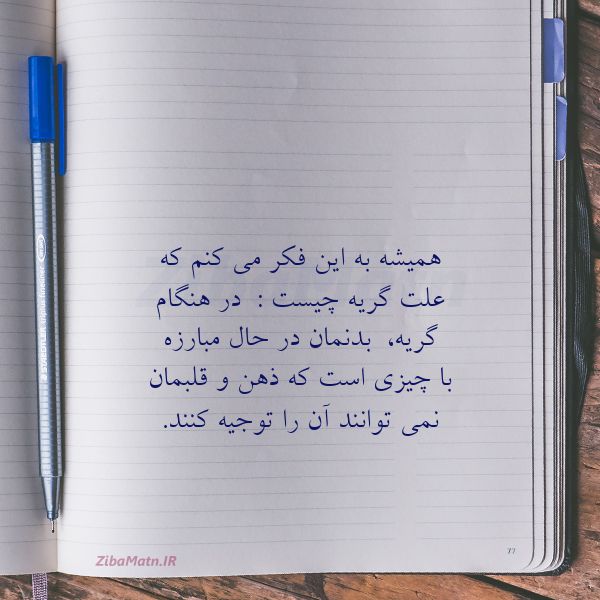 همیشه به این فکر می کنم که
علت گریه چیست : در هنگام
گریه، بدنمان در حال مبارزه
با چیزی است که ذهن و قلبمان
نمی توانند آن را توجیه کنند.
77
ZibaMatn.IR